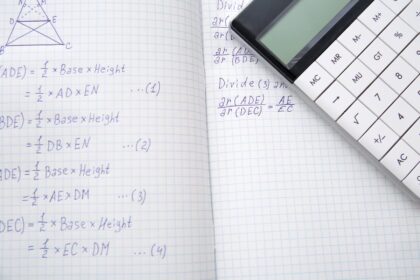 A M
D E
B C
(ADE) = 1/2 × Base × Height
= 1/2 × AD × EN ...(1)
BDE) = 1/2 × Base × Height
= 1/2 DB × EN (2)
ADE) = 1/2 Base × Height
= 1/2 × AE × DM ...(3)
DEC) = 1/2 × Base × Height
= 1/2 × EC × DM ...(4)
Divid
ar(
ar(
ar(A
ar(BDE)
Divide (3) an
ar(ADE) = AE
ar(DEC) EC
MC MR M- M+
→ MU GT %
√ 7 8
+/- 4
AC
C